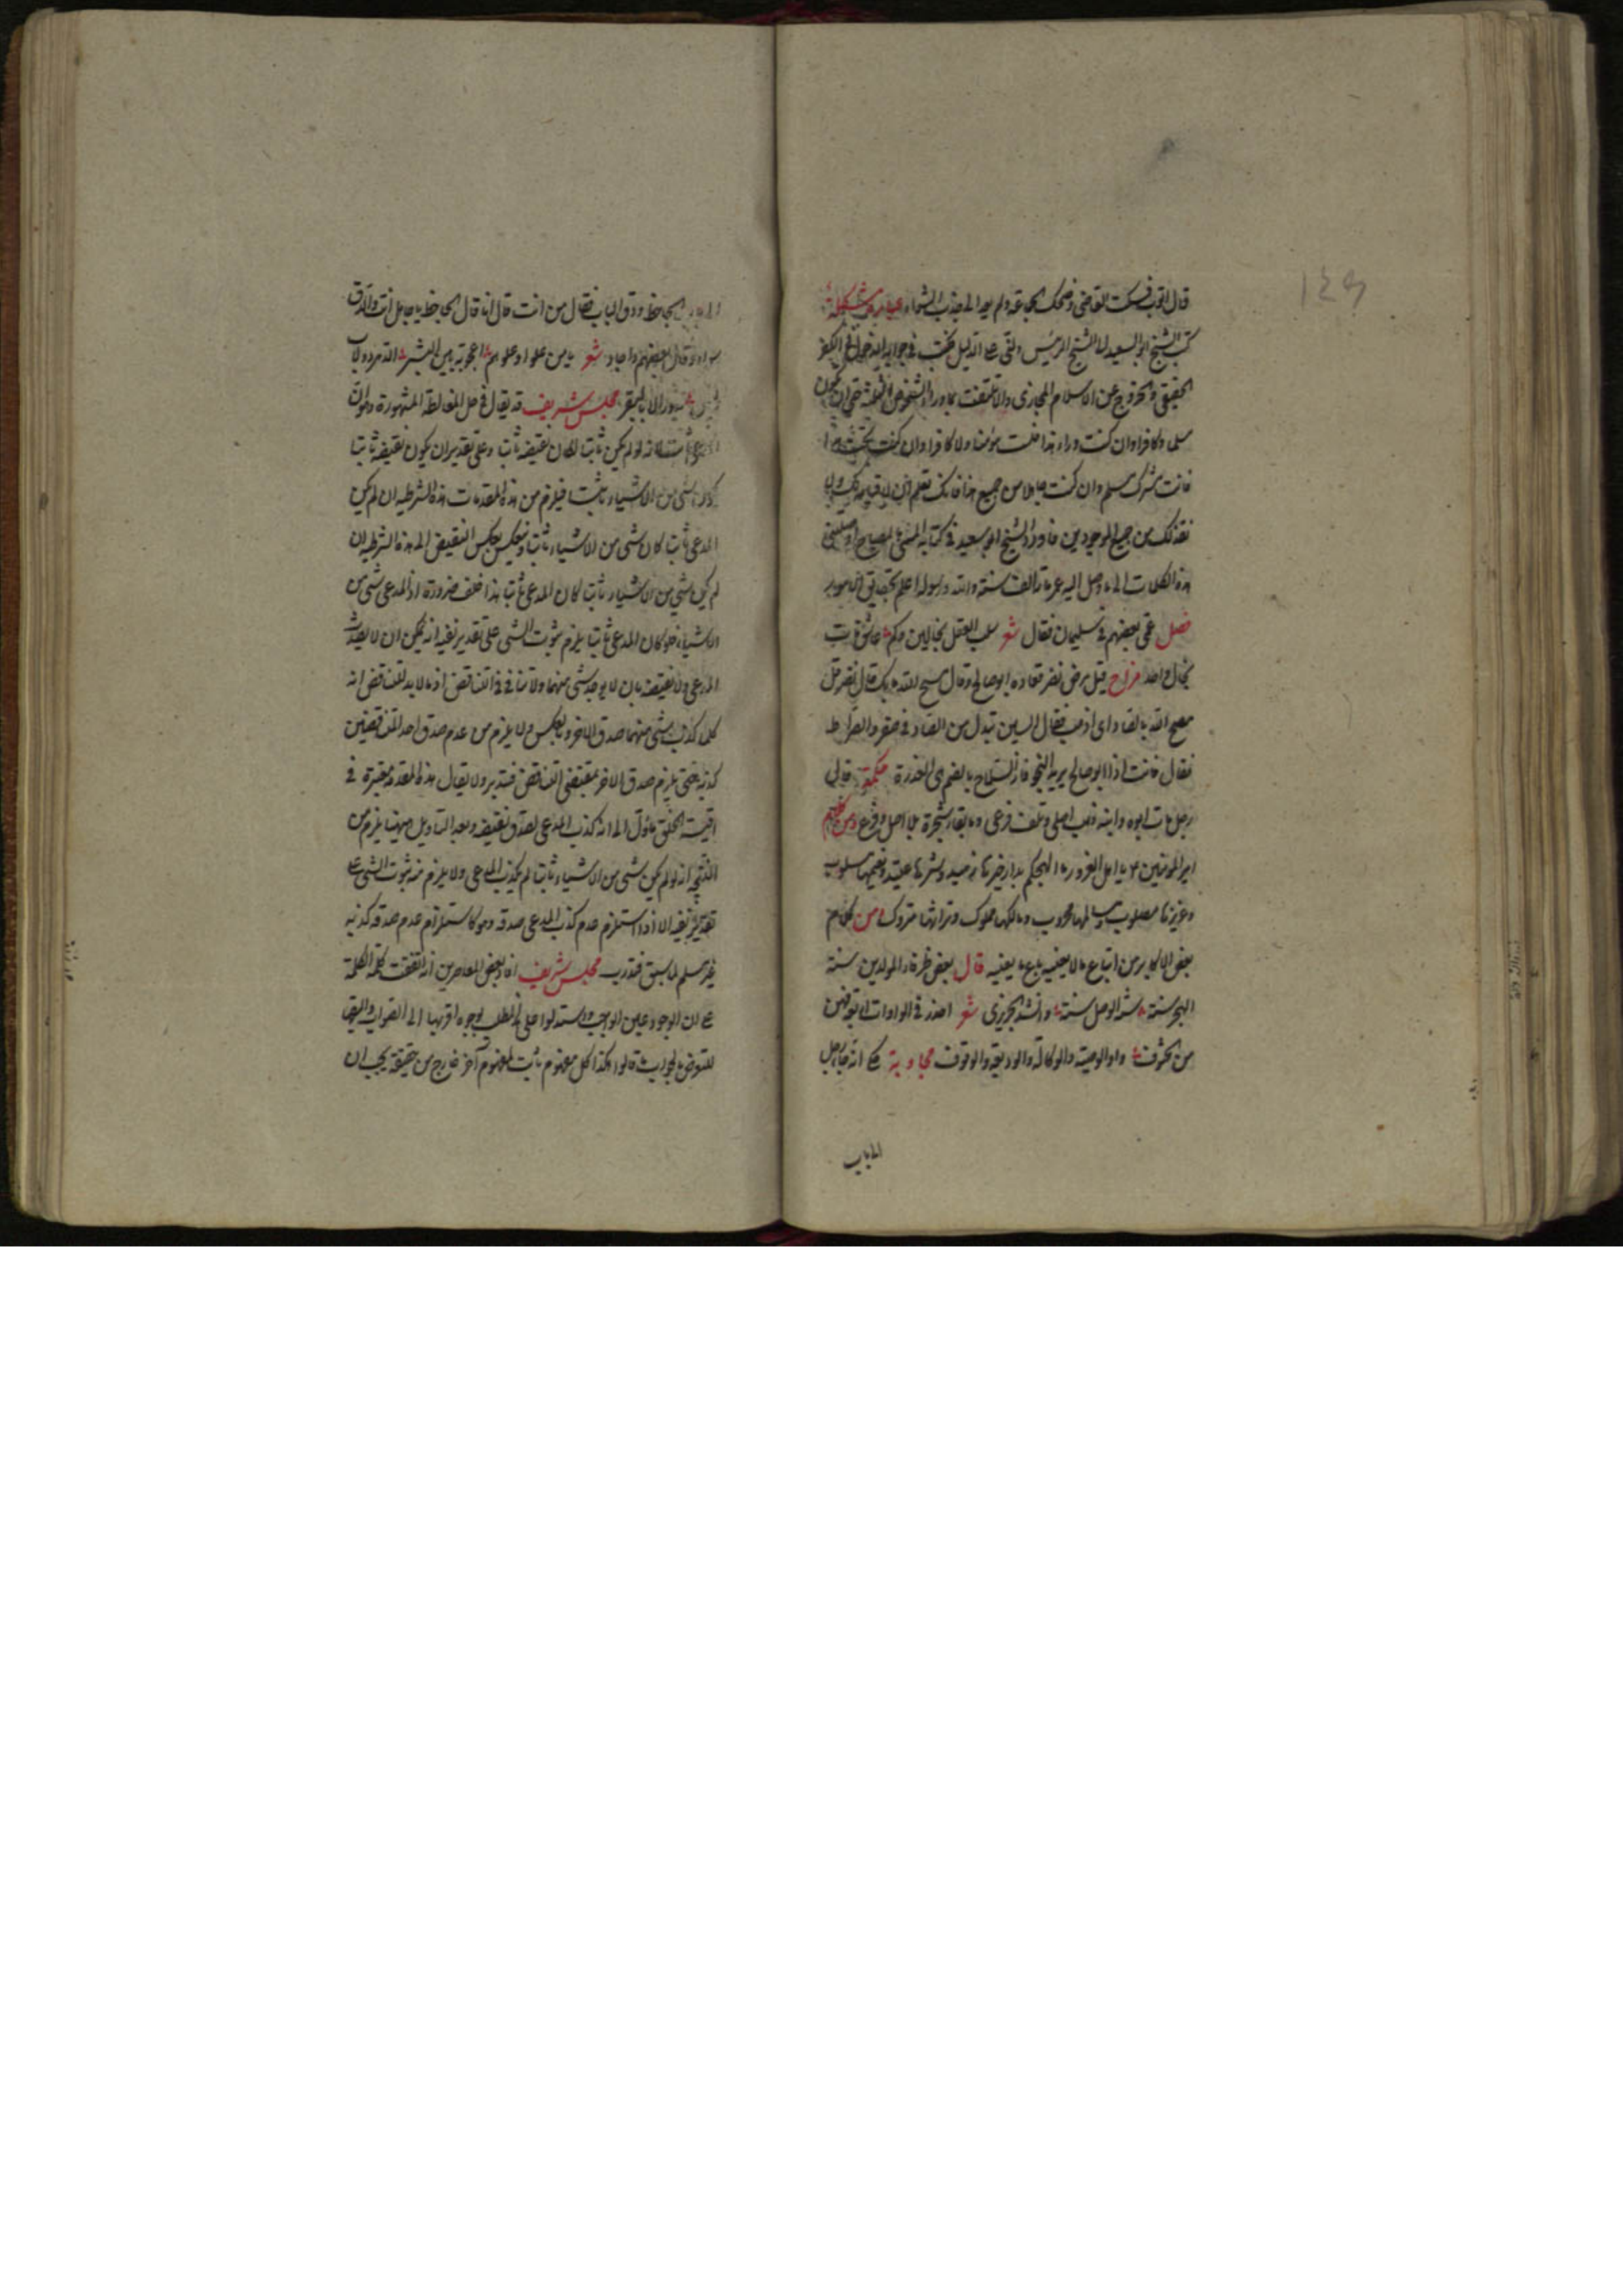 قال اتوب فسكت القاضى وضحك الجماعة ولم يعد الى جذب الشهاد عبارة مشكلة
كتب الشيخ ابو السعيد الى الشيخ الرئيس دلنى على الدليل فكتب فى جوابه الدخول فى الكفر
الحقيقى والخروج عن الاسلام المجازى والا تلتفت بما وراء الشخوص الثلثة حتى ان تكون
مسلما وكافرا وان كنت وراء هذا فلست مؤمنا ولا كافرا وان كنت تحت هذا
فانت مشرك مسلم وان كنت جاهلا من جميع هذا فانك تعلم ان لا قيمة لك ولا
تعدك من جميع الموجودين فاورد الشيخ ابو سعيد فى كتابه المسمى بالمصباح اوصلتنى
هذه الكلمات الى ما وصل اليه عمر مائة الف سنة والله ورسوله اعلم بحقايق الامور
فصل عمى بعضهم فى سليمان فقال شعر سلب العقل بخالين وكم عاشق مات
بخال واحد مزاح قيل مرض نضر فعاده ابو صالح وقال مسح الله ما بك فقال نضر قل
مصح الله بالصاد اى اذهب فقال السين تبدل من الصاد فى صقر والصراط
فقال فانت اذا ابو صالح يريد النجو فان السلاح بالضم هى العذرة حكمة قال
رجل مات ابوه وابنه ذهب اصلى وتلف فرعى وما بقاء شجرة بلا اصل وفرع ومن كلام
امير المؤمنين ع يا اهل الغرور ما الهجكم بدار خيرها زهيد وشرها عتيد ونعيمها مسلوب
وعزيزها مصلوب ومسالمها محروب ومالكها مملوك وتراثها متروك ومن كلام
بعض الاكابر من اتباع ما لا يعنيه باع ما يعنيه قال بعض ظرفاء المولدين سنة
الهجر سنة سنة الوصل سنة وانشد الحريرى شعر احذر فى الواوات اربعة فهن
من الحتوف واو الوصية والوكالة والوديعة والوقوف مجاوبة حكى انه جاء رجل
الى باب
الى باب الجاحظ ودق الباب فقال من انت قال انا قال الجاحظ يا جاهل انت والدق
سواء وقال بعضهم واجاد شعر يا من علوا وعلوهم اعجوبة بين البشر الدهر دولاب
يدور الا بالبقر مجلس شريف قد يقال فى حل المغالطة المشهورة وهو ان
المدعى ثابت لانه لو لم يكن ثابتا لكان نقيضه ثابتا وعلى تقدير ان يكون نقيضه ثابتا
كان شئ من الاشياء ثابتا فيلزم من هذه المقدمات هذه الشرطية ان لم يكن
المدعى ثابتا كان شئ من الاشياء ثابتا وينعكس بعكس النقيض الى هذه الشرطية ان
لم يكن شئ من الاشياء ثابتا كان المدعى ثابتا هذا خلف ضرورة اذ المدعى شئ من
الاشياء فلو كان المدعى ثابتا يلزم ثبوت الشئ على تقدير نفيه انه يمكن ان لا يصدق
المدعى ولا نقيضه بان لا يوجد شئ منهما ولا تنافى فى التناقض اذ ما لا بد للتناقض انه
كلما كذب شئ منهما صدق الاخر وبالعكس ولا يلزم من عدم صدق احد النقيضين
كذبه حتى يلزم صدق الاخر بمقتضى التناقض فتدبر ولا يقال هذه المقدمة معتبرة فى
اقيسة الخلق ماؤل الى انه كذب المدعى لصدق نقيضه وبعد التاويل ههنا يلزم من
النتيجة انه لو لم يكن شئ من الاشياء ثابتا لم يكذب المدعى ولا يلزم منه ثبوت الشئ على
تقدير نفيه الا اذا استلزم عدم كذب المدعى صدقه وهو كاستلزام عدم صدقه كذبه
غير مسلم لما سبق فتدرب مجلس شريف افاد بعض المعاصرين انه اتفقت كلمة الكلمة
على ان الوجود عين الواجب واستدلوا على المطلب بوجوه اقربها الى الصواب واليقها
للتعرض بالجواب ما قالوا هكذا كل مفهوم ثابت لمفهوم آخر خارج من حقيقته يجب ان